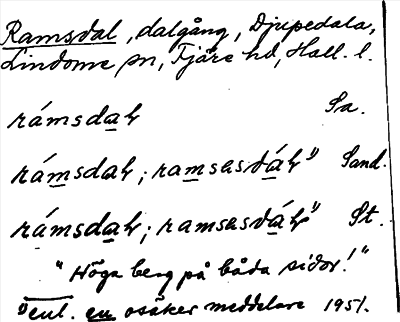 Ramsdal, dalgång, Djupedala,
Lindome sn, Fjäre hd, Hall. l.
rámsdaƚ Sa.
rámsdaƚ; ramsasdáƚ¹⁾ Sand.
rámsdaƚ; ramsasdáƚ¹⁾ St.
"Höga berg på båda sidor!"
¹⁾enl. en osäker meddelare 1951.